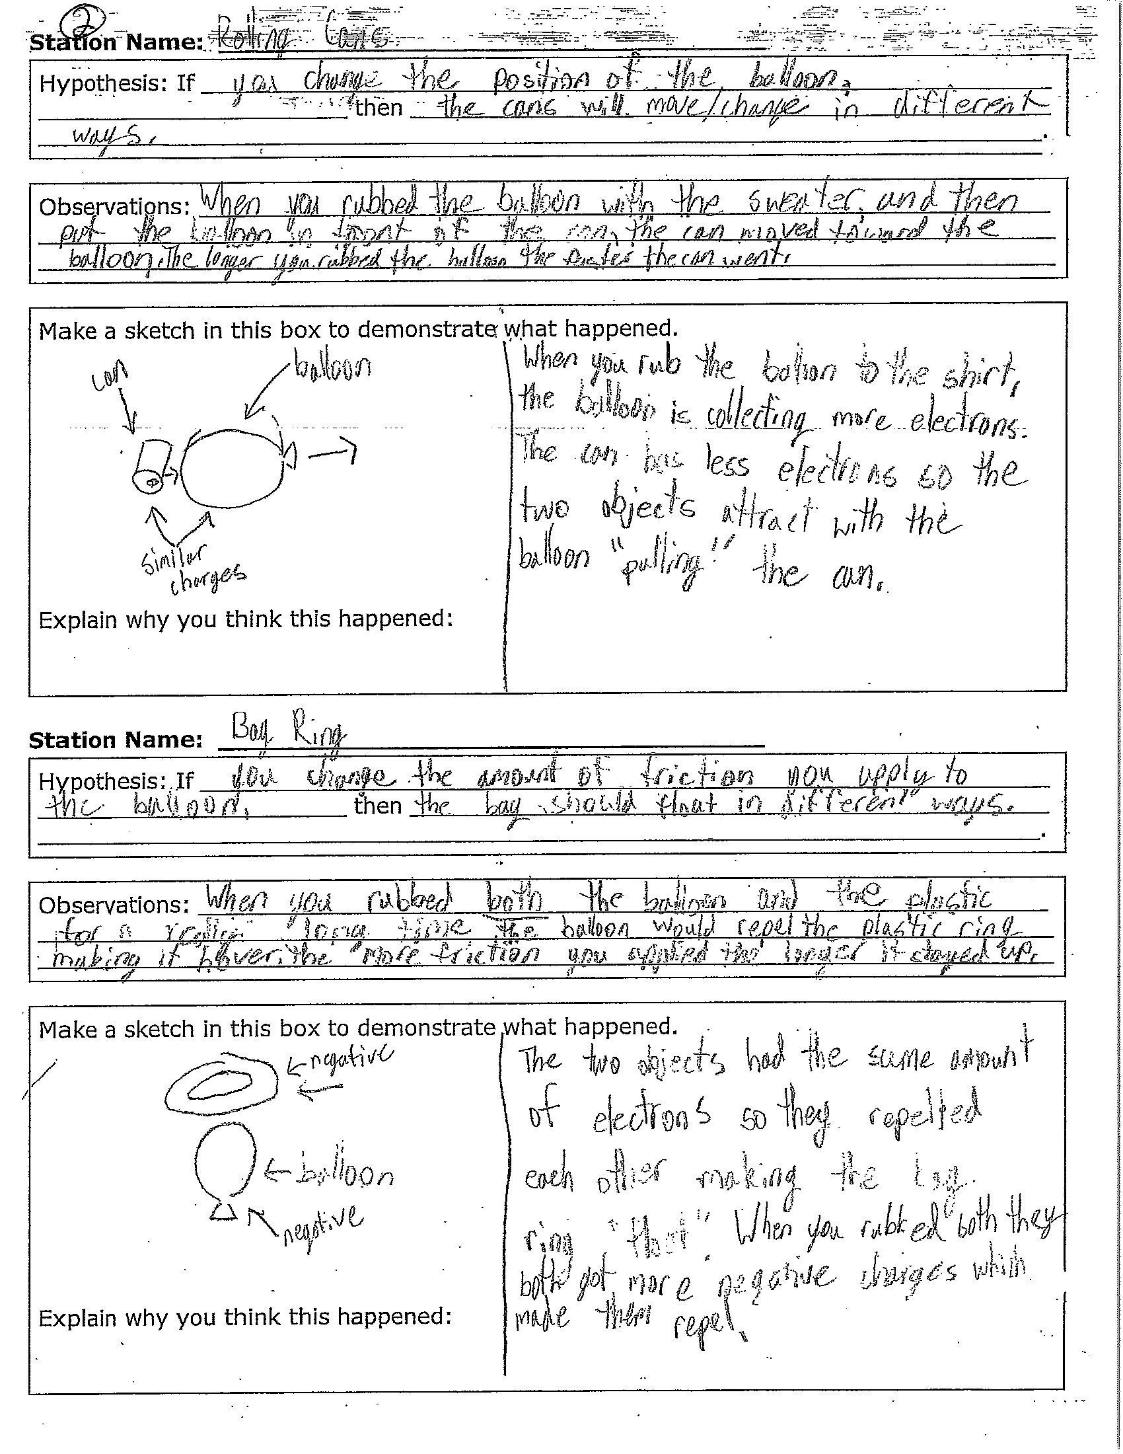 2
Station Name: Rolling Cans
Hypothesis: If you change the position of the balloon,
then the cans will move/change in different
ways.
Observations: When you rubbed the balloon with the sweater, and then
put the balloon in front of the can, the can moved toward the
balloon. The longer you rubbed the balloon the faster the can went.
Make a sketch in this box to demonstrate what happened.
can
balloon
similar
charges
When you rub the to the shirt,
the balloon is collecting more electrons.
The can has less electrons so the
two objects attract with the
balloon "pulling" the can.
Explain why you think this happened:
Station Name: Bag Ring
Hypothesis: If you change the amount of friction you apply to
the balloon, then the bag should float in different ways.
Observations: When you rubbed both the balloon and the plastic
for a long time the balloon would repel the plastic ring
making it hover. The more friction you applied the longer it stayed up.
Make a sketch in this box to demonstrate what happened.
negative
balloon
negative
The two objects had the same amount
of electrons so they repelled
each other making the bag
ring "float". When you rubbed both they
both got more negative charges which
made them repel.
Explain why you think this happened: